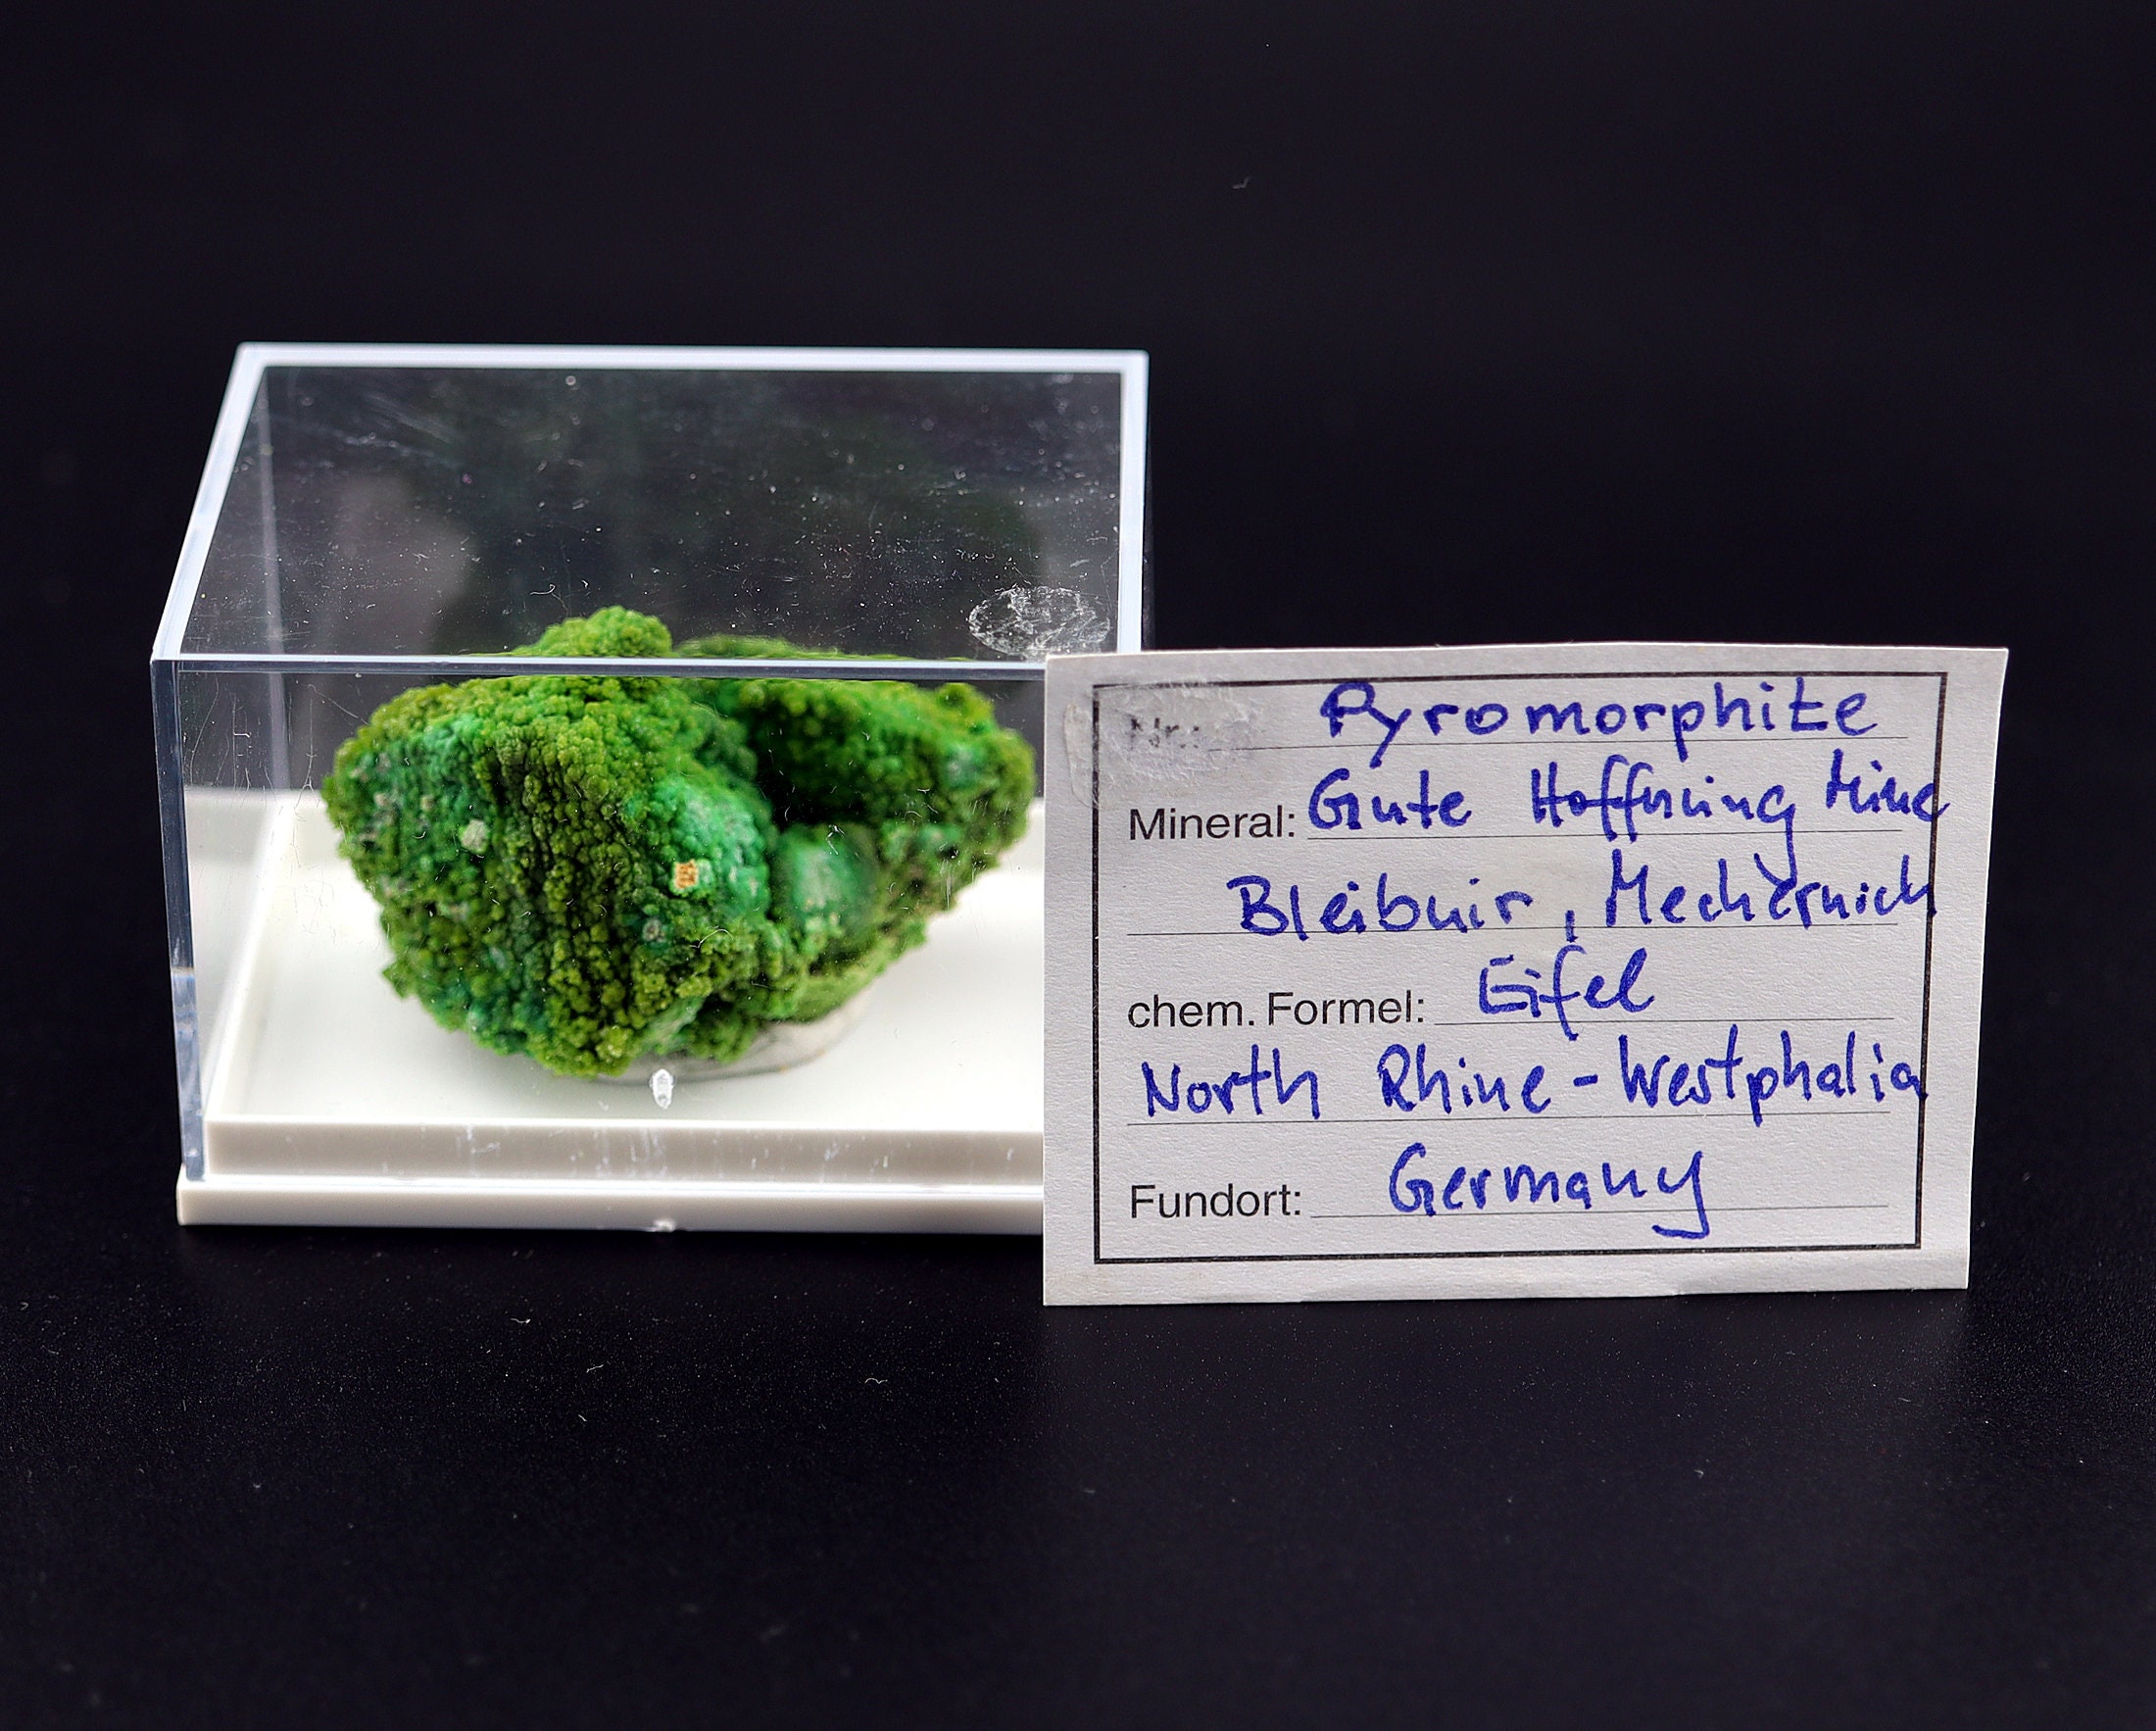 Nr.: Pyromorphite
Mineral: Gute Hoffnung Mine
Bleibuir, Mechernich
chem. Formel: Eifel
North Rhine-Westphalia
Fundort: Germany